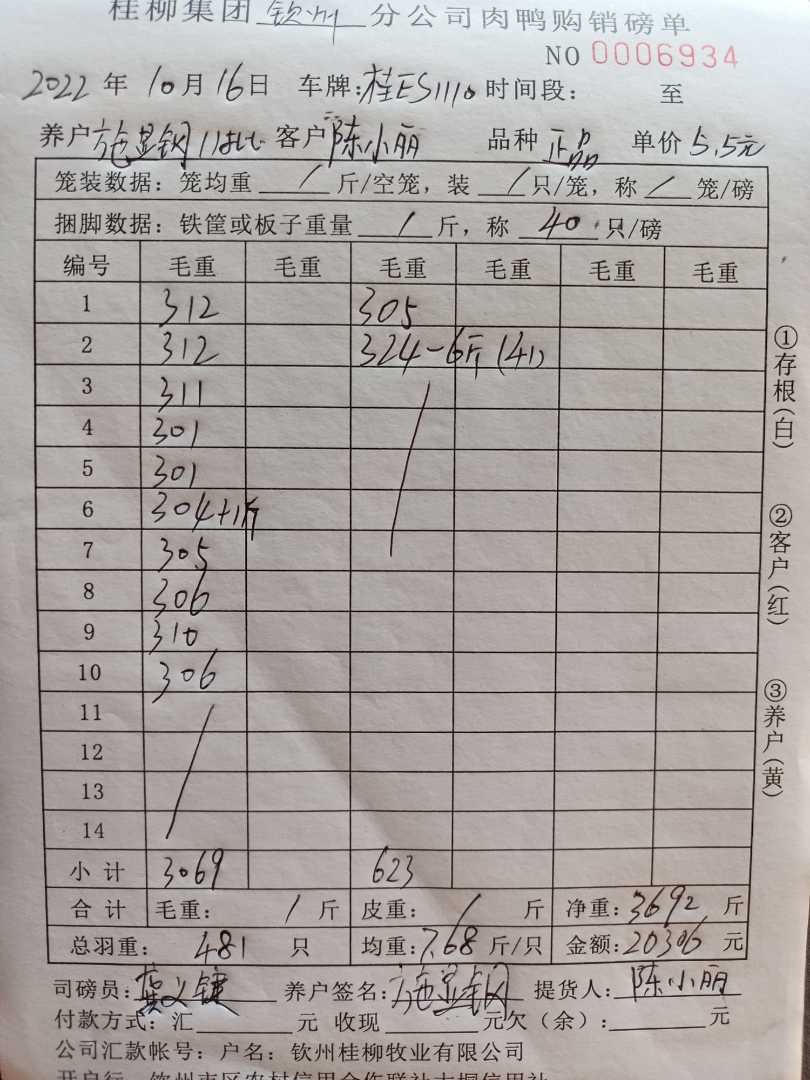 桂柳集团 钦州 分公司肉鸭购销磅单
NO 0006934
2022 年 10 月 16 日 车牌:桂ES1110 时间段: 至
养户 施显钢 客户 陈小丽 品种 正品 单价 5.5元
笼装数据: 笼均重 / 斤/空笼, 装 / 只/笼, 称 / 笼/磅
捆脚数据: 铁筐或板子重量 / 斤, 称 40 只/磅
编号 毛重 毛重 毛重 毛重 毛重 毛重
1 312 305
2 312 324-6斤 (41)
3 311
4 301
5 301
6 304+1斤
7 305
8 306
9 310
10 306
11
12
13
14
小计 3069 623
合计 毛重: / 斤 皮重: / 斤 净重: 3692 斤
总羽重: 481 只 均重: 7.68 斤/只 金额: 20306 元
司磅员: 龚义键 养户签名: 施显钢 提货人: 陈小丽
付款方式: 汇 元 收现 元欠(余): 元
公司汇款帐号: 户名: 钦州桂柳牧业有限公司
开户行 钦州市区农村信用合作联社大垌信用社
①存根(白)
②客户(红)
③养户(黄)